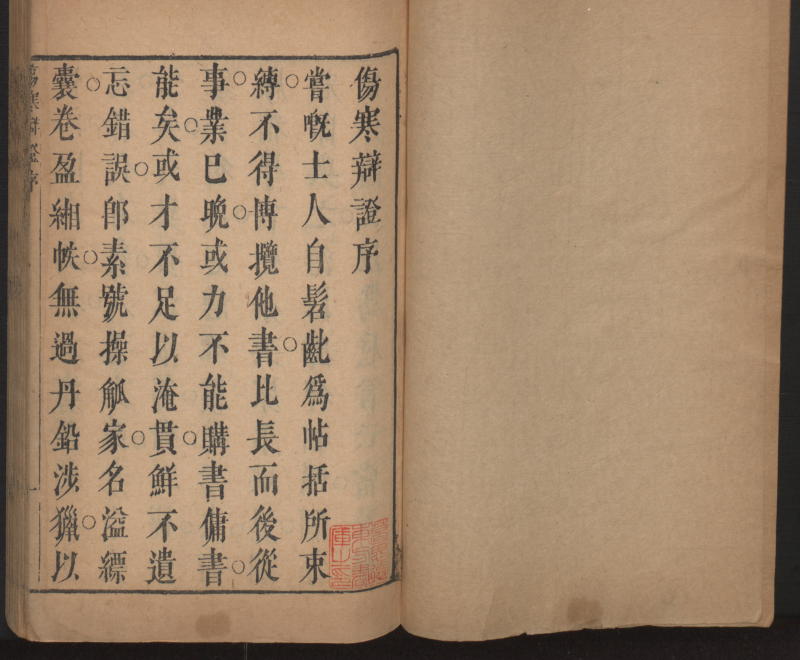 傷寒辯證序
嘗嘅士人自髫齔○爲帖括所束
縛○不得博攬他書比長而後從
事○業已晚○或力不能購書傭書○
能矣○或才不足以淹貫○鮮不遺
忘錯誤○郎素號操觚家○名溢縹
囊○卷盈緗帙○無過丹鉛涉獵○以
傷寒辯證序